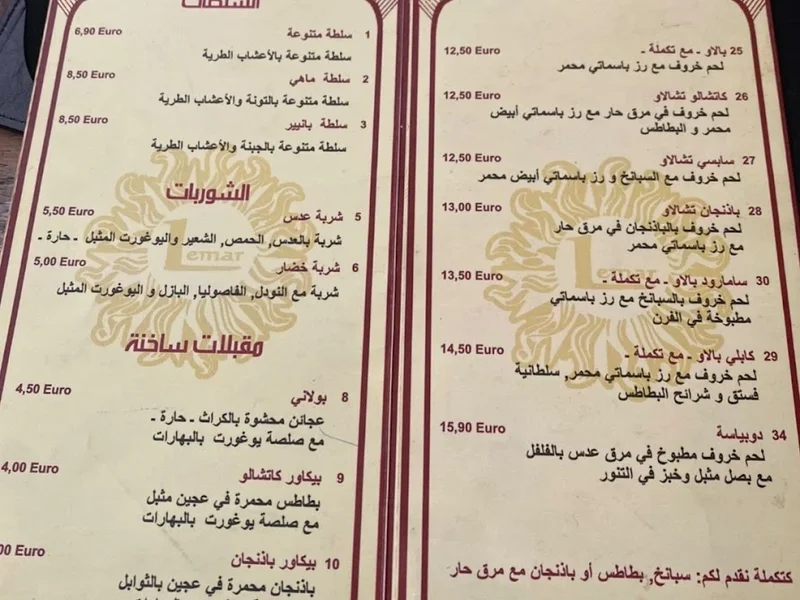 السلطات
1 سلطة متنوعة 6,90 Euro
سلطة متنوعة بالأعشاب الطرية
2 سلطة ماهي 8,50 Euro
سلطة متنوعة بالتونة والأعشاب الطرية
3 سلطة بانيير 8,50 Euro
سلطة متنوعة بالجبنة والأعشاب الطرية
الشوربات
5 شربة عدس 5,50 Euro
شربة بالعدس, الحمص, الشعير واليوغورت المثبل - حارة -
6 شربة خضار 5,00 Euro
شربة مع النودل, الفاصوليا, البازل و اليوغورت المثبل
Lemar
مقبلات ساخنة
8 بولاني 4,50 Euro
عجائن محشوة بالكراث - حارة -
مع صلصة يوغورت بالبهارات
9 بيكاور كاتشالو 4,00 Euro
بطاطس محمرة في عجين مثبل
مع صلصة يوغورت بالبهارات
10 بيكاور باذنجان 00 Euro
باذنجان محمرة في عجين بالثوابل
25 بالاو - مع تكملة - 12,50 Euro
لحم خروف مع رز باسماتي محمر
26 كاتشالو تشالاو 12,50 Euro
لحم خروف في مرق حار مع رز باسماتي أبيض
محمر و البطاطس
27 سابسي تشالاو 12,50 Euro
لحم خروف مع السبانخ و رز باسماتي أبيض محمر
28 باذنجان تشالاو 13,00 Euro
لحم خروف بالباذنجان في مرق حار
مع رز باسماتي محمر
Lemar
30 سامارود بالاو - مع تكملة - 13,50 Euro
لحم خروف بالسبانخ مع رز باسماتي
مطبوخة في الفرن
29 كابلي بالاو - مع تكملة - 14,50 Euro
لحم خروف مع رز باسماتي محمر, سلطانية
فستق و شرائح البطاطس
34 دوبياسة 15,90 Euro
لحم خروف مطبوخ في مرق عدس بالفلفل
مع بصل مثبل وخبز في التنور
كتكملة نقدم لكم: سبانخ, بطاطس أو باذنجان مع مرق حار